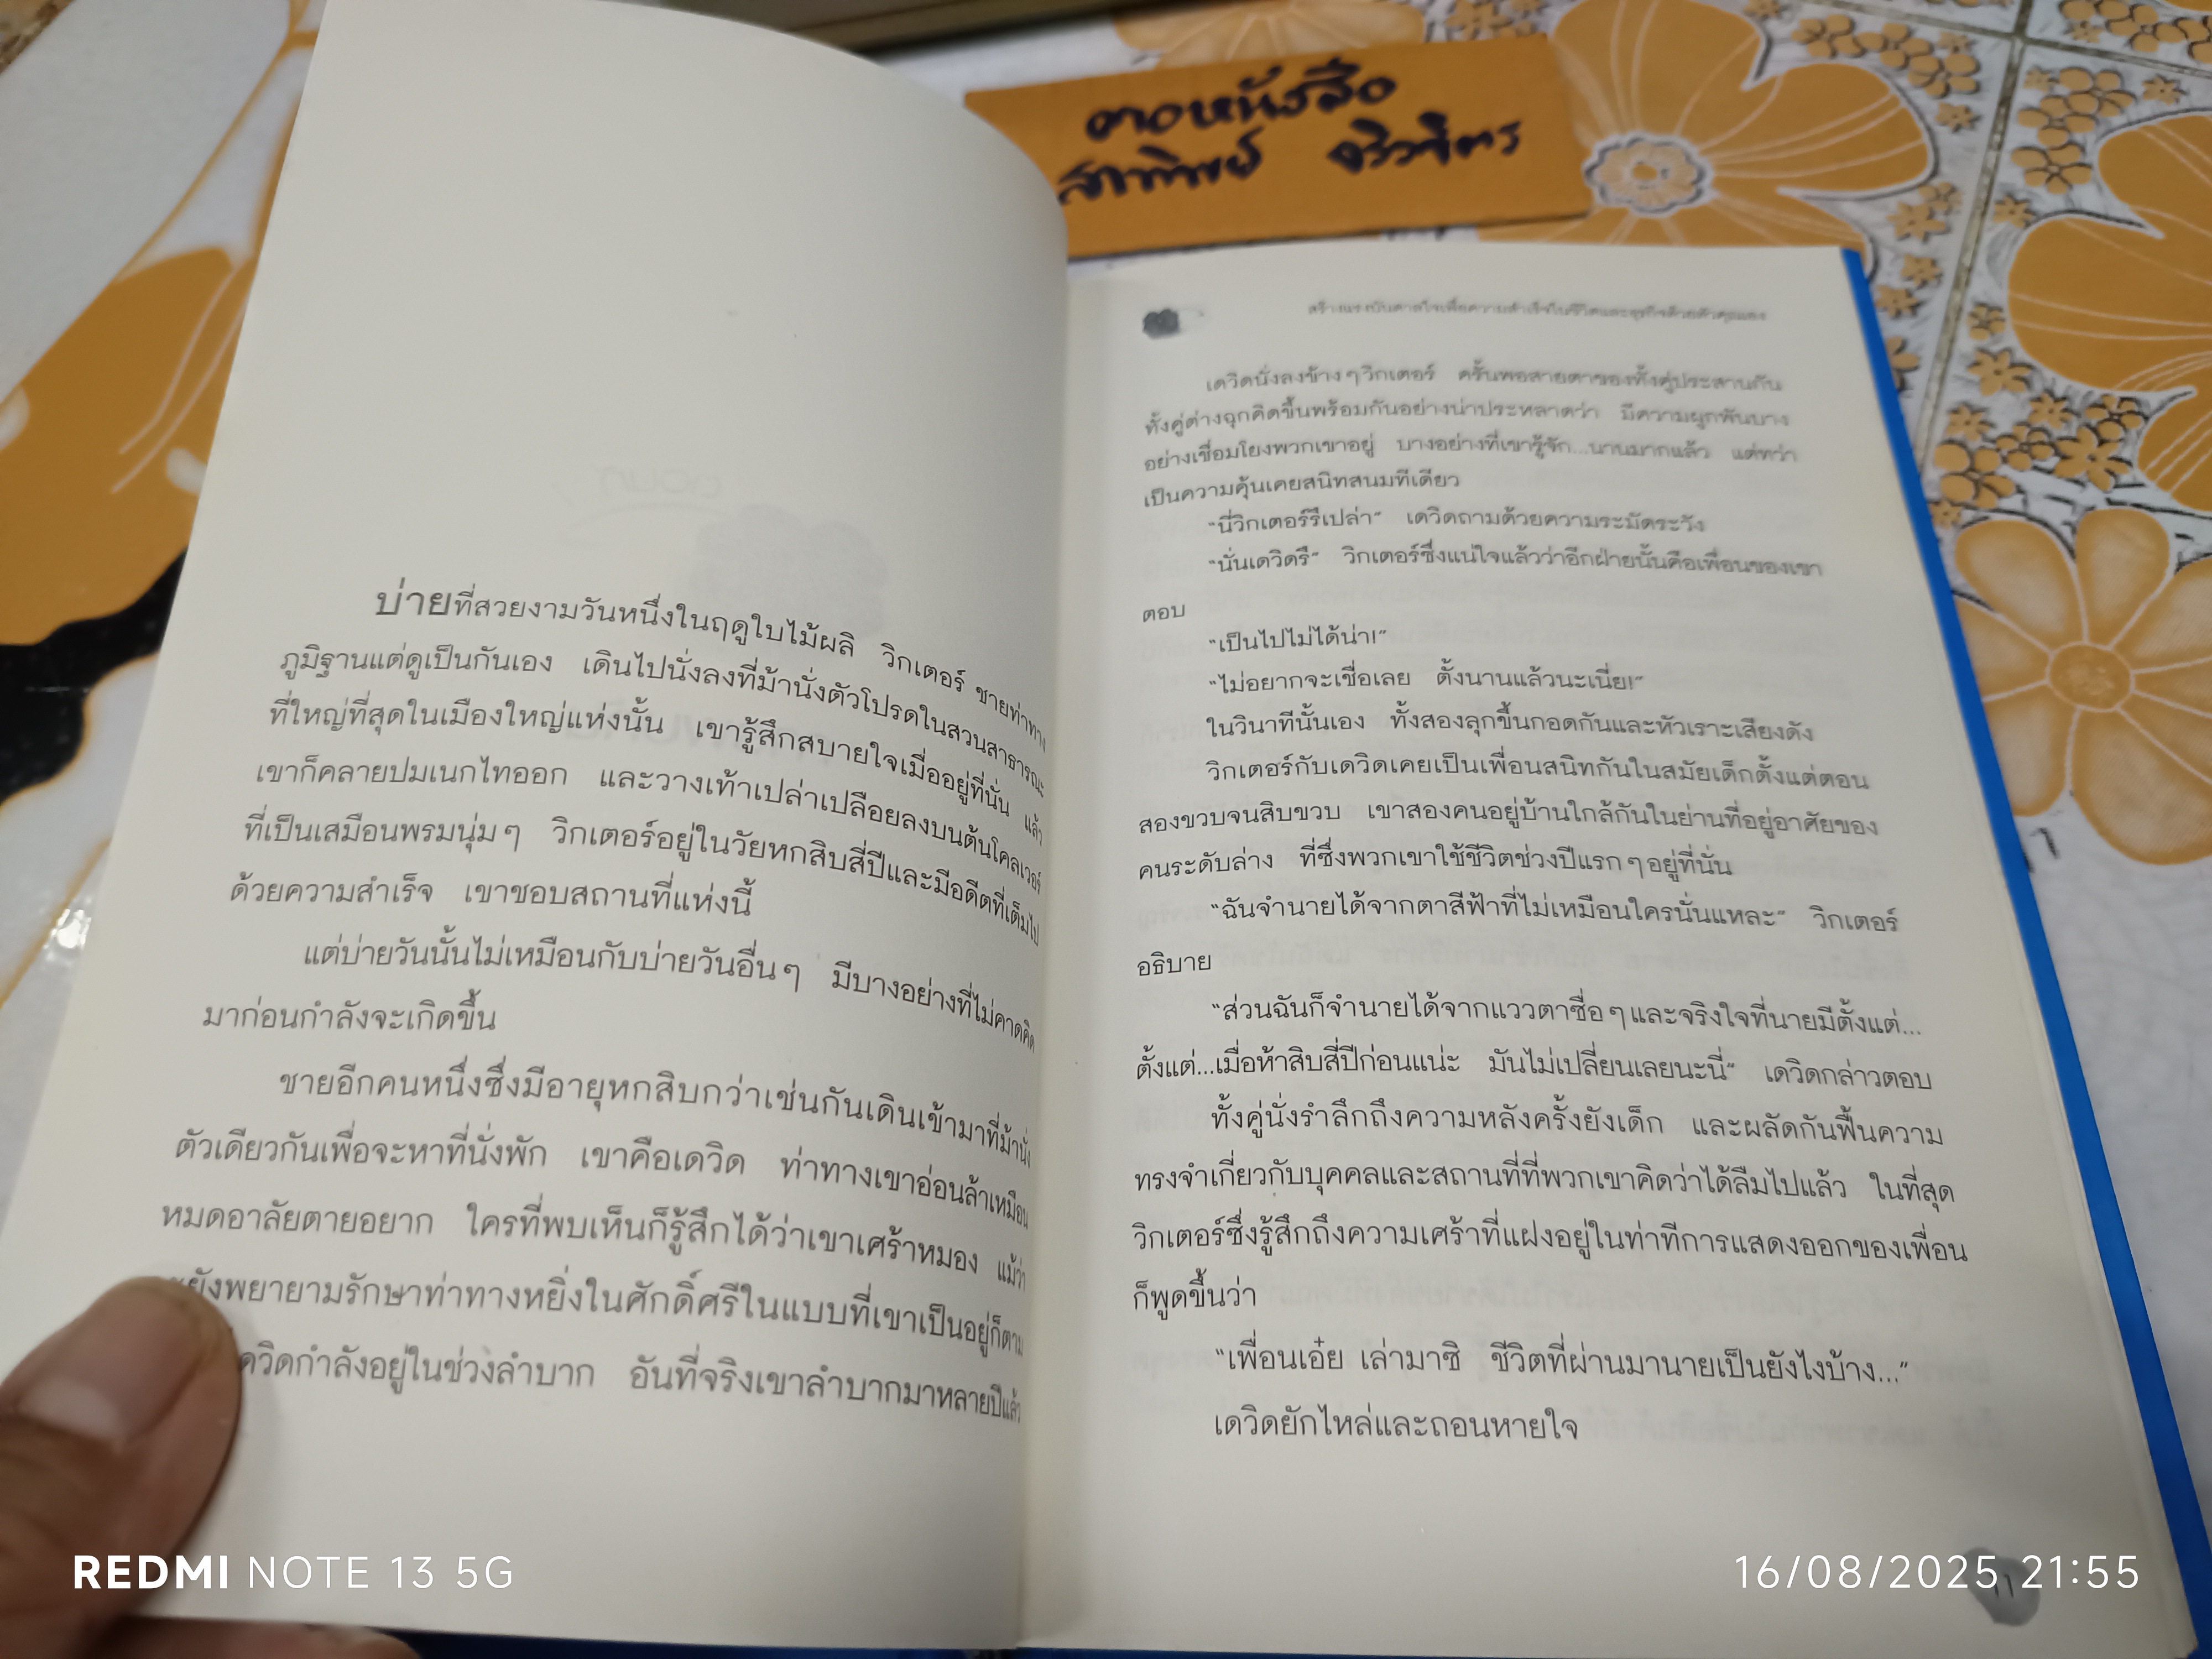 บ่ายที่สวยงามวันหนึ่งในฤดูใบไม้ผลิ วิกเตอร์ ชายท่าทาง
ภูมิฐานแต่ดูเป็นกันเอง เดินไปนั่งลงที่ม้านั่งตัวโปรดในสวนสาธารณะ
ที่ใหญ่ที่สุดในเมืองใหญ่แห่งนั้น เขารู้สึกสบายใจเมื่ออยู่ที่นั่น แล้ว
เขาก็คลายปมเนกไทออก และวางเท้าเปล่าเปลือยลงบนต้นโคลเวอร์
ที่เป็นเสมือนพรมนุ่มๆ วิกเตอร์อยู่ในวัยหกสิบสี่ปีและมีอดีตที่เต็มไป
ด้วยความสำเร็จ เขาชอบสถานที่แห่งนี้
แต่บ่ายวันนั้นไม่เหมือนกับบ่ายวันอื่นๆ มีบางอย่างที่ไม่คาดคิด
มาก่อนกำลังจะเกิดขึ้น
ชายอีกคนหนึ่งซึ่งมีอายุหกสิบกว่าเช่นกันเดินเข้ามาที่ม้านั่ง
ตัวเดียวกันเพื่อจะหาที่นั่งพัก เขาคือเดวิด ท่าทางเขาอ่อนล้าเหมือน
หมดอาลัยตายอยาก ใครที่พบเห็นก็รู้สึกได้ว่าเขาเศร้าหมอง แม้ว่า
ยังพยายามรักษาท่าทางหยิ่งในศักดิ์ศรีในแบบที่เขาเป็นอยู่ก็ตาม
ดวิดกำลังอยู่ในช่วงลำบาก อันที่จริงเขาลำบากมาหลายปีแล้ว
ดาวหนังสือ
สร้างแรงบันดาลใจเพื่อความสำเร็จในชีวิตและธุรกิจด้วยตัวคุณเอง
เดวิดนั่งลงข้างๆวิกเตอร์ ครั้นพอสายตาของทั้งคู่ประสานกัน
ทั้งคู่ต่างฉุกคิดขึ้นพร้อมกันอย่างน่าประหลาดว่า มีความผูกพันบาง
อย่างเชื่อมโยงพวกเขาอยู่ บางอย่างที่เขารู้จัก...นานมากแล้ว แต่ทว่า
เป็นความคุ้นเคยสนิทสนมทีเดียว
"นี่วิกเตอร์รึเปล่า" เดวิดถามด้วยความระมัดระวัง
"นั่นเดวิดรึ" วิกเตอร์ซึ่งแน่ใจแล้วว่าอีกฝ่ายนั้นคือเพื่อนของเขา
ตอบ
"เป็นไปไม่ได้น่า!"
"ไม่อยากจะเชื่อเลย ตั้งนานแล้วนะเนี่ย!"
ในวินาทีนั้นเอง ทั้งสองลุกขึ้นกอดกันและหัวเราะเสียงดัง
วิกเตอร์กับเดวิดเคยเป็นเพื่อนสนิทกันในสมัยเด็กตั้งแต่ตอน
สองขวบจนสิบขวบ เขาสองคนอยู่บ้านใกล้กันในย่านที่อยู่อาศัยของ
คนระดับล่าง ที่ซึ่งพวกเขาใช้ชีวิตช่วงปีแรกๆอยู่ที่นั่น
"ฉันจำนายได้จากตาสีฟ้าที่ไม่เหมือนใครนั่นแหละ" วิกเตอร์
อธิบาย
"ส่วนฉันก็จำนายได้จากแววตาซื่อๆและจริงใจที่นายมีตั้งแต่...
ตั้งแต่...เมื่อห้าสิบสี่ปีก่อนแน่ะ มันไม่เปลี่ยนเลยนะนี่" เดวิดกล่าวตอบ
ทั้งคู่นั่งรำลึกถึงความหลังครั้งยังเด็ก และผลัดกันฟื้นความ
ทรงจำเกี่ยวกับบุคคลและสถานที่ที่พวกเขาคิดว่าได้ลืมไปแล้ว ในที่สุด
วิกเตอร์ซึ่งรู้สึกถึงความเศร้าที่แฝงอยู่ในท่าทีการแสดงออกของเพื่อน
ก็พูดขึ้นว่า
"เพื่อนเอ๋ย เล่ามาซิ ชีวิตที่ผ่านมานายเป็นยังไงบ้าง..."
เดวิดยักไหล่และถอนหายใจ
11
REDMI NOTE 13 5G
16/08/2025 21:55